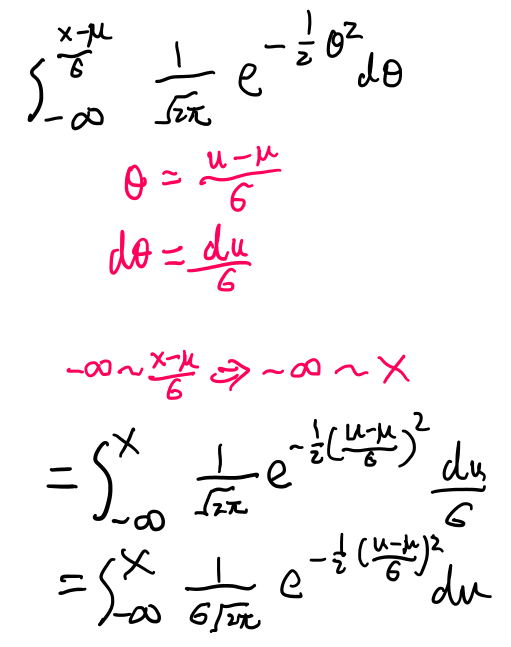 ∫_{-∞}^{\frac{x-μ}{σ}} \frac{1}{\sqrt{2π}} e^{-\frac{1}{2}θ^2} dθ
θ = \frac{u-μ}{σ}
dθ = \frac{du}{σ}
-∞ ~ \frac{x-μ}{σ} ⇒ -∞ ~ x
= ∫_{-∞}^{x} \frac{1}{\sqrt{2π}} e^{-\frac{1}{2}(\frac{u-μ}{σ})^2} \frac{du}{σ}
= ∫_{-∞}^{x} \frac{1}{σ\sqrt{2π}} e^{-\frac{1}{2}(\frac{u-μ}{σ})^2} du